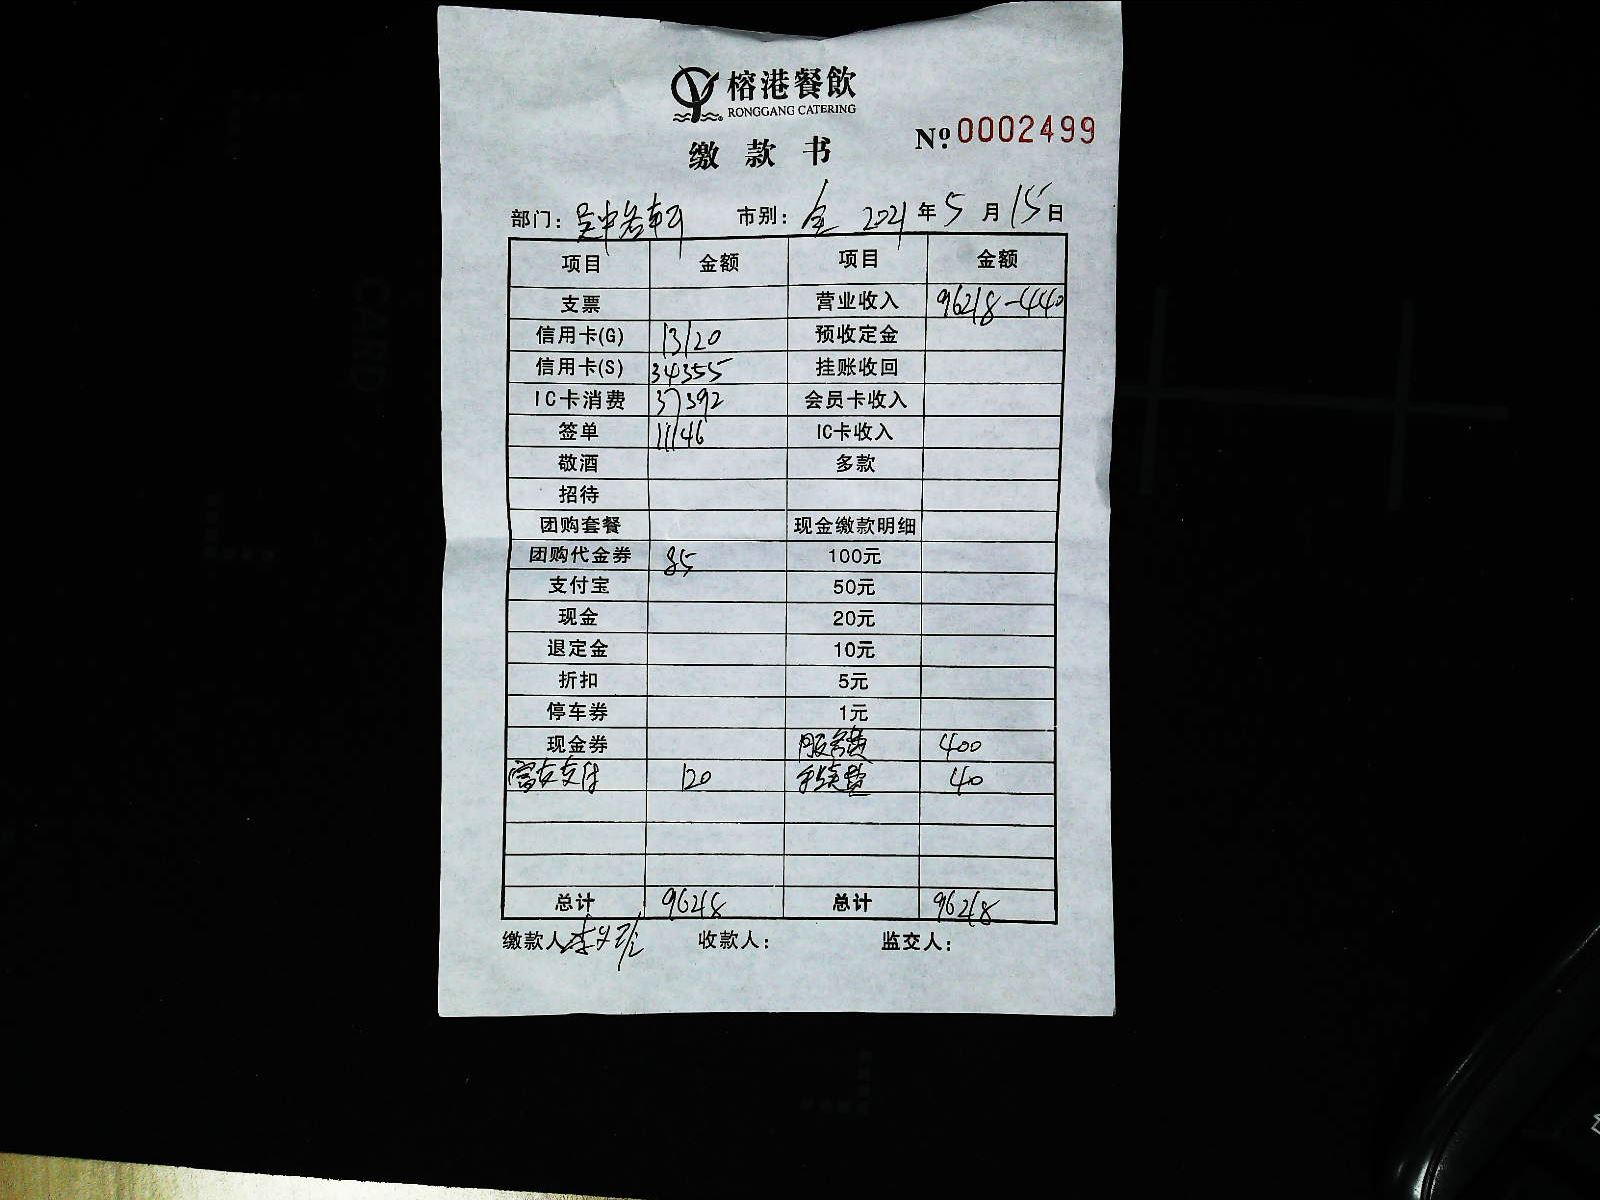 榕港餐飲
RONGGANG CATERING
缴款书
Nº 0002499
部门: 吴中 市别: 全 2021年5月15日
项目 金额 项目 金额
支票 营业收入 96218-440
信用卡(G) 13120 预收定金
信用卡(S) 34355 挂账收回
IC卡消费 37392 会员卡收入
签单 11146 IC卡收入
敬酒 多款
招待
团购套餐 现金缴款明细
团购代金券 85 100元
支付宝 50元
现金 20元
退定金 10元
折扣 5元
停车券 1元
现金券 服务费 400
富友支付 120 手续费 40
总计 96218 总计 96218
缴款人 李 收款人: 监交人:
CARD